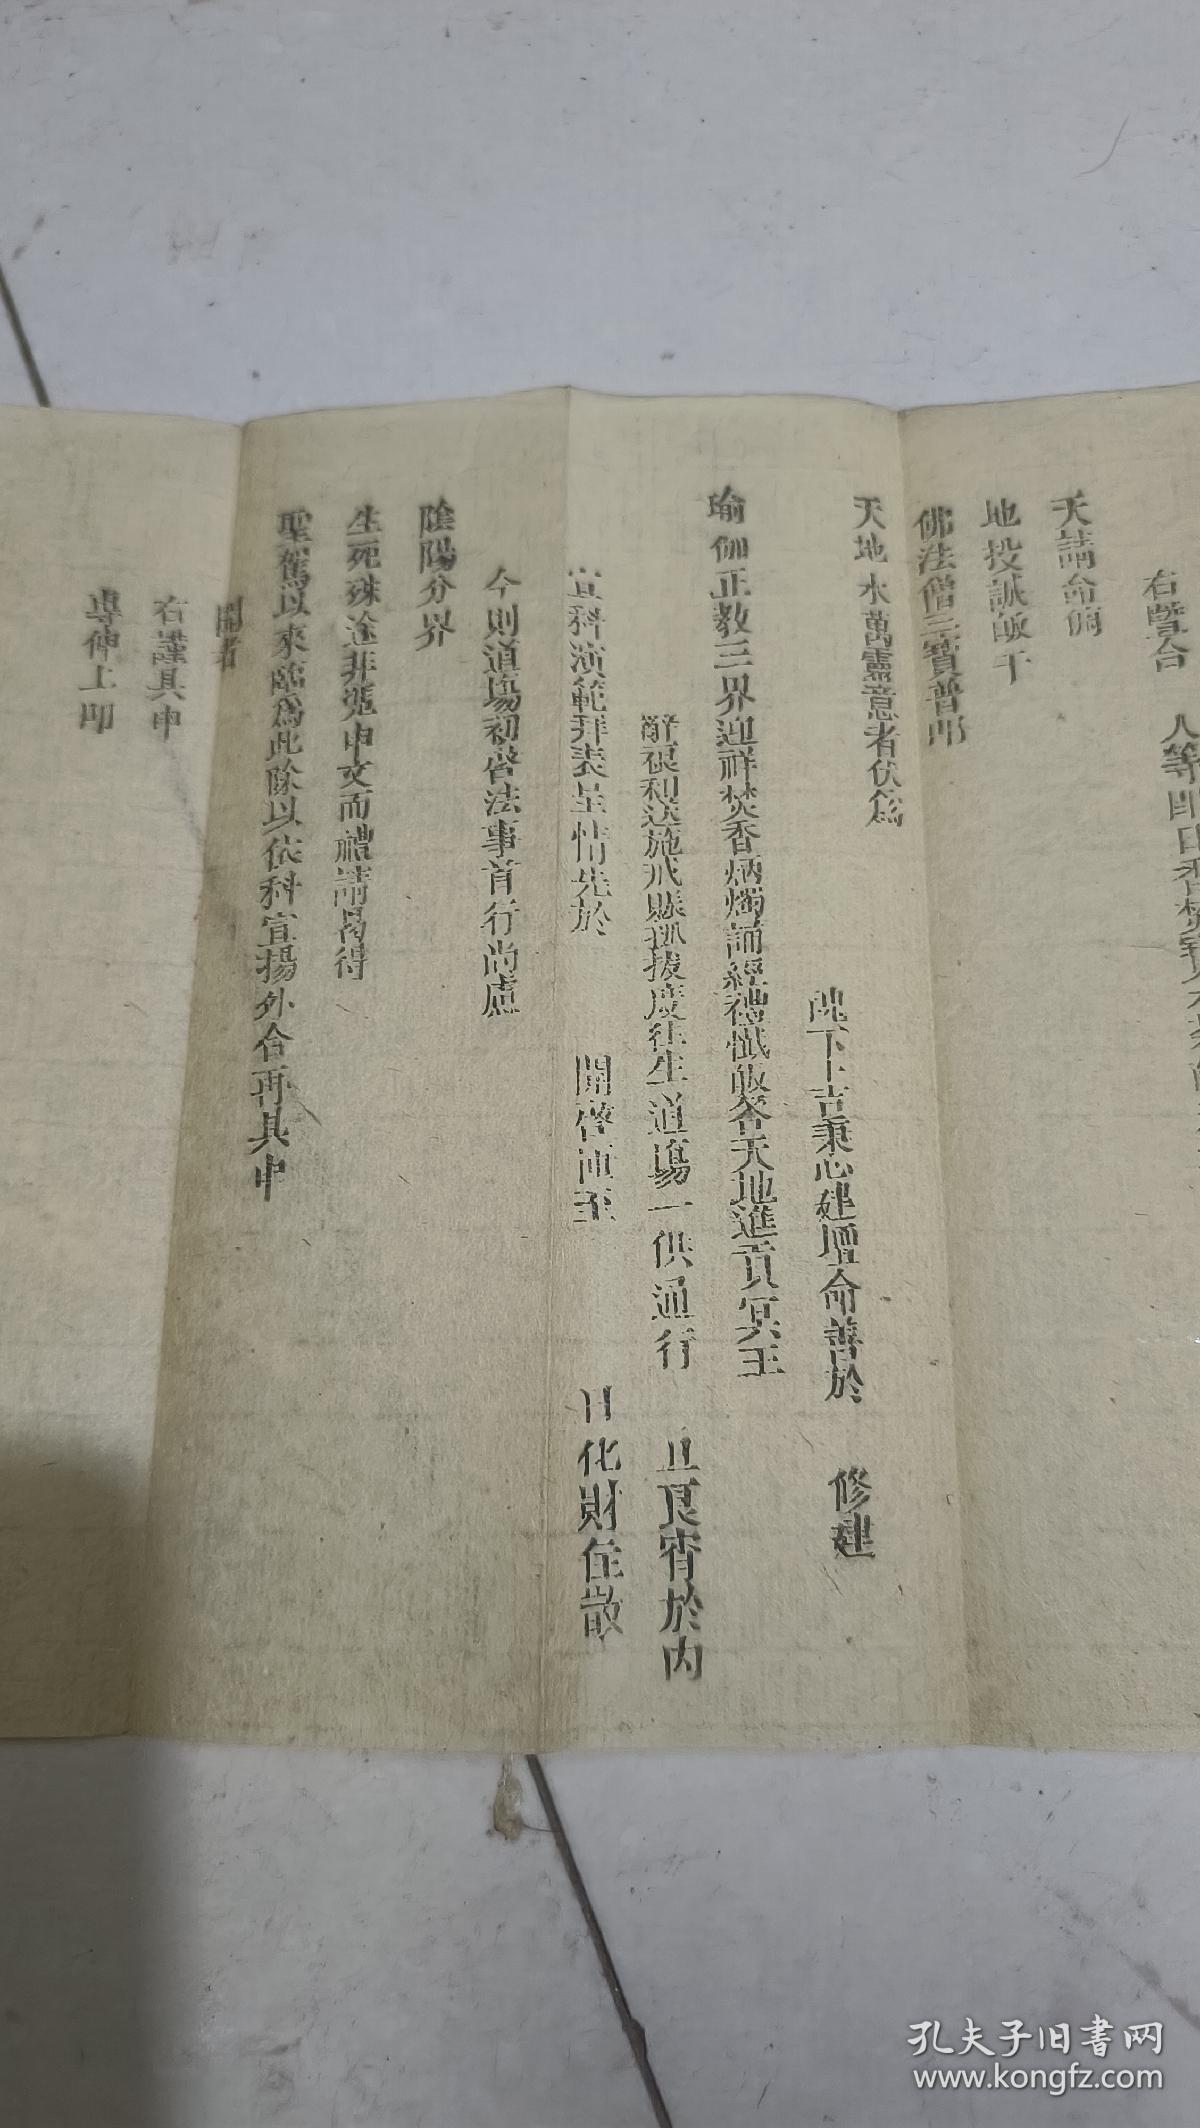 右暨合 人等即日香焚寶
天請命俯
地投誠皈干
佛法僧三寶普郎
天地水萬靈意者伏為
下卜吉秉心建壇命善於 修建
瑜伽正教三界迎祥焚香炳燭誦經禮懺皈答天地進貢冥王
辭禳和送施戒賑孤拔度往生道場一供通行 旦良宵於內
宣科演範拜表呈情先於 開啓 至 日化財住散
今則道場初啓法事首行尚慮
陰陽分界
生死殊途非憑申文而禮請曷得
聖駕以來臨為此除以依科宣揚外合再具申
聞者
右謹具申
專伸上叩
孔夫子旧书网
www.kongfz.com